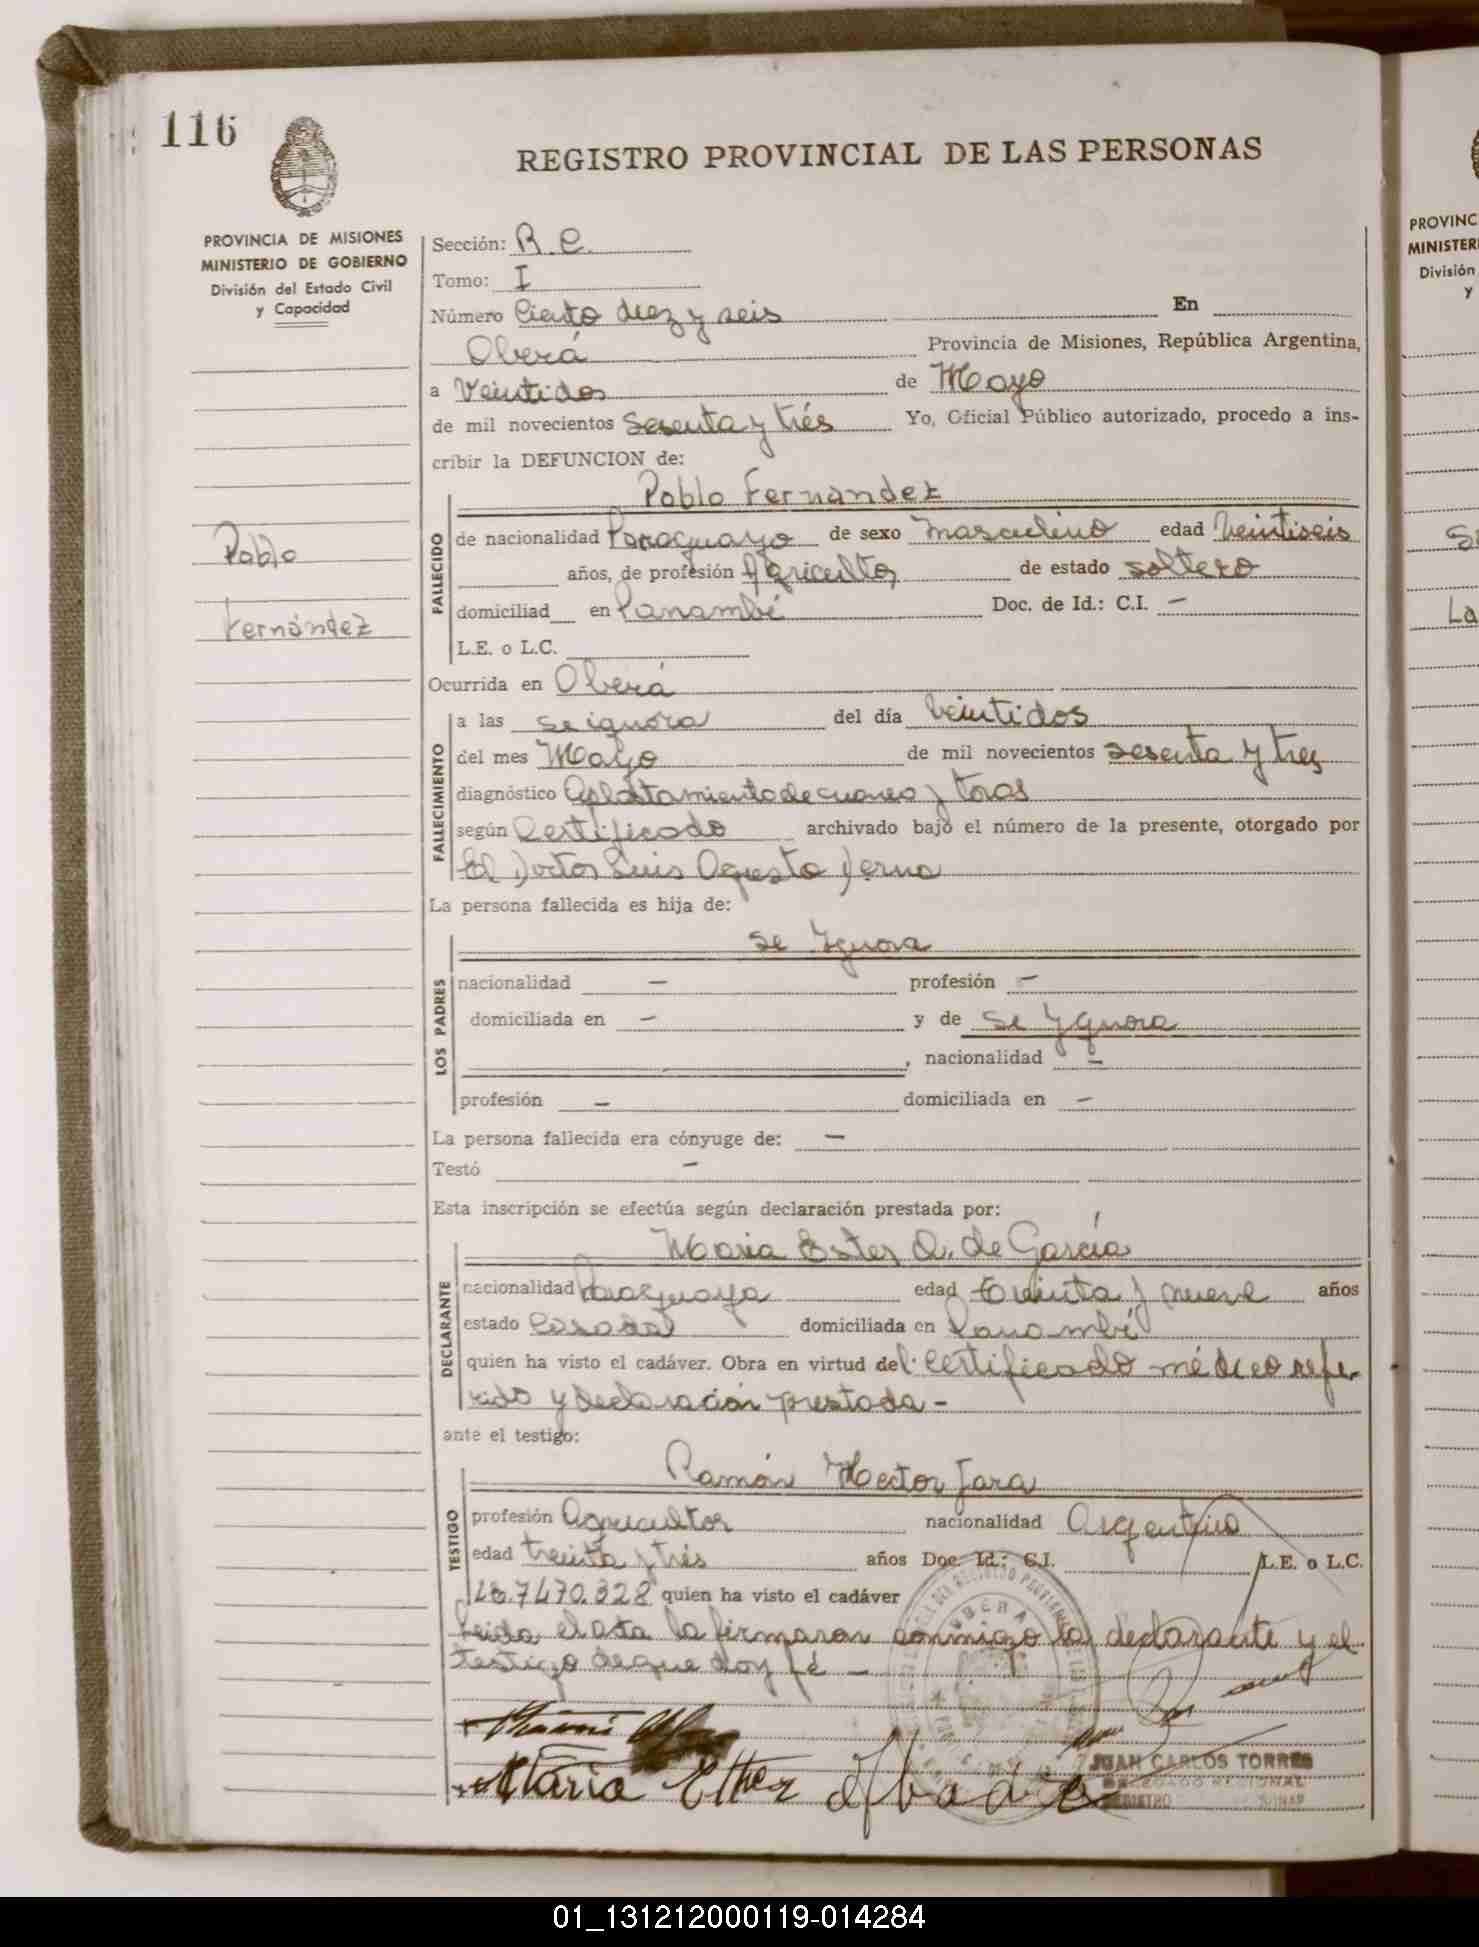 116
REGISTRO PROVINCIAL DE LAS PERSONAS
PROVINCIA DE MISIONES
MINISTERIO DE GOBIERNO
División del Estado Civil
y Capacidad
Sección: R.C.
Tomo: I
Número Ciento diez y seis En
Oberá Provincia de Misiones, República Argentina,
a Veintidos de Mayo
de mil novecientos sesenta y trés Yo, Oficial Público autorizado, procedo a ins-
cribir la DEFUNCION de:
Pablo Fernandez
Pablo
Fernández
FALLECIDO
de nacionalidad Paraguayo de sexo masculino edad Veintiseis
años, de profesión Agricultor de estado soltero
domiciliad en Panambí Doc. de Id.: C.I. —
L.E. o L.C.
Ocurrida en Oberá
FALLECIMIENTO
a las se ignora del día Veintidos
del mes Mayo de mil novecientos sesenta y tres
diagnóstico Aplastamiento de craneo y torax
según Certificado archivado bajo el número de la presente, otorgado por
El Doctor Luis
La persona fallecida es hija de:
LOS PADRES
se Ygnora
nacionalidad — profesión —
domiciliada en — y de se Ygnora
, nacionalidad —
profesión — domiciliada en —
La persona fallecida era cónyuge de: —
Testó —
Esta inscripción se efectúa según declaración prestada por:
DECLARANTE
Maria Ester A. de García
nacionalidad Paraguaya edad treinta y nueve años
estado Casada domiciliada en Panambí
quien ha visto el cadáver. Obra en virtud del certificado médico refe-
rido y declaración prestada -
ante el testigo:
TESTIGO
Ramón Hector Jara
profesión Agricultor nacionalidad Argentino
edad treinta y trés años Doc. Id.: C.I. L.E. o L.C.
7.470.328 quien ha visto el cadáver
Leida el acta la firmaron conmigo la declarante y el
testigo de que doy fé —
Maria Ether
JUAN CARLOS TORRES
DELEGADO REGIONAL
REGISTRO
PROVINC
MINISTER
División
y
La
01_131212000119-014284